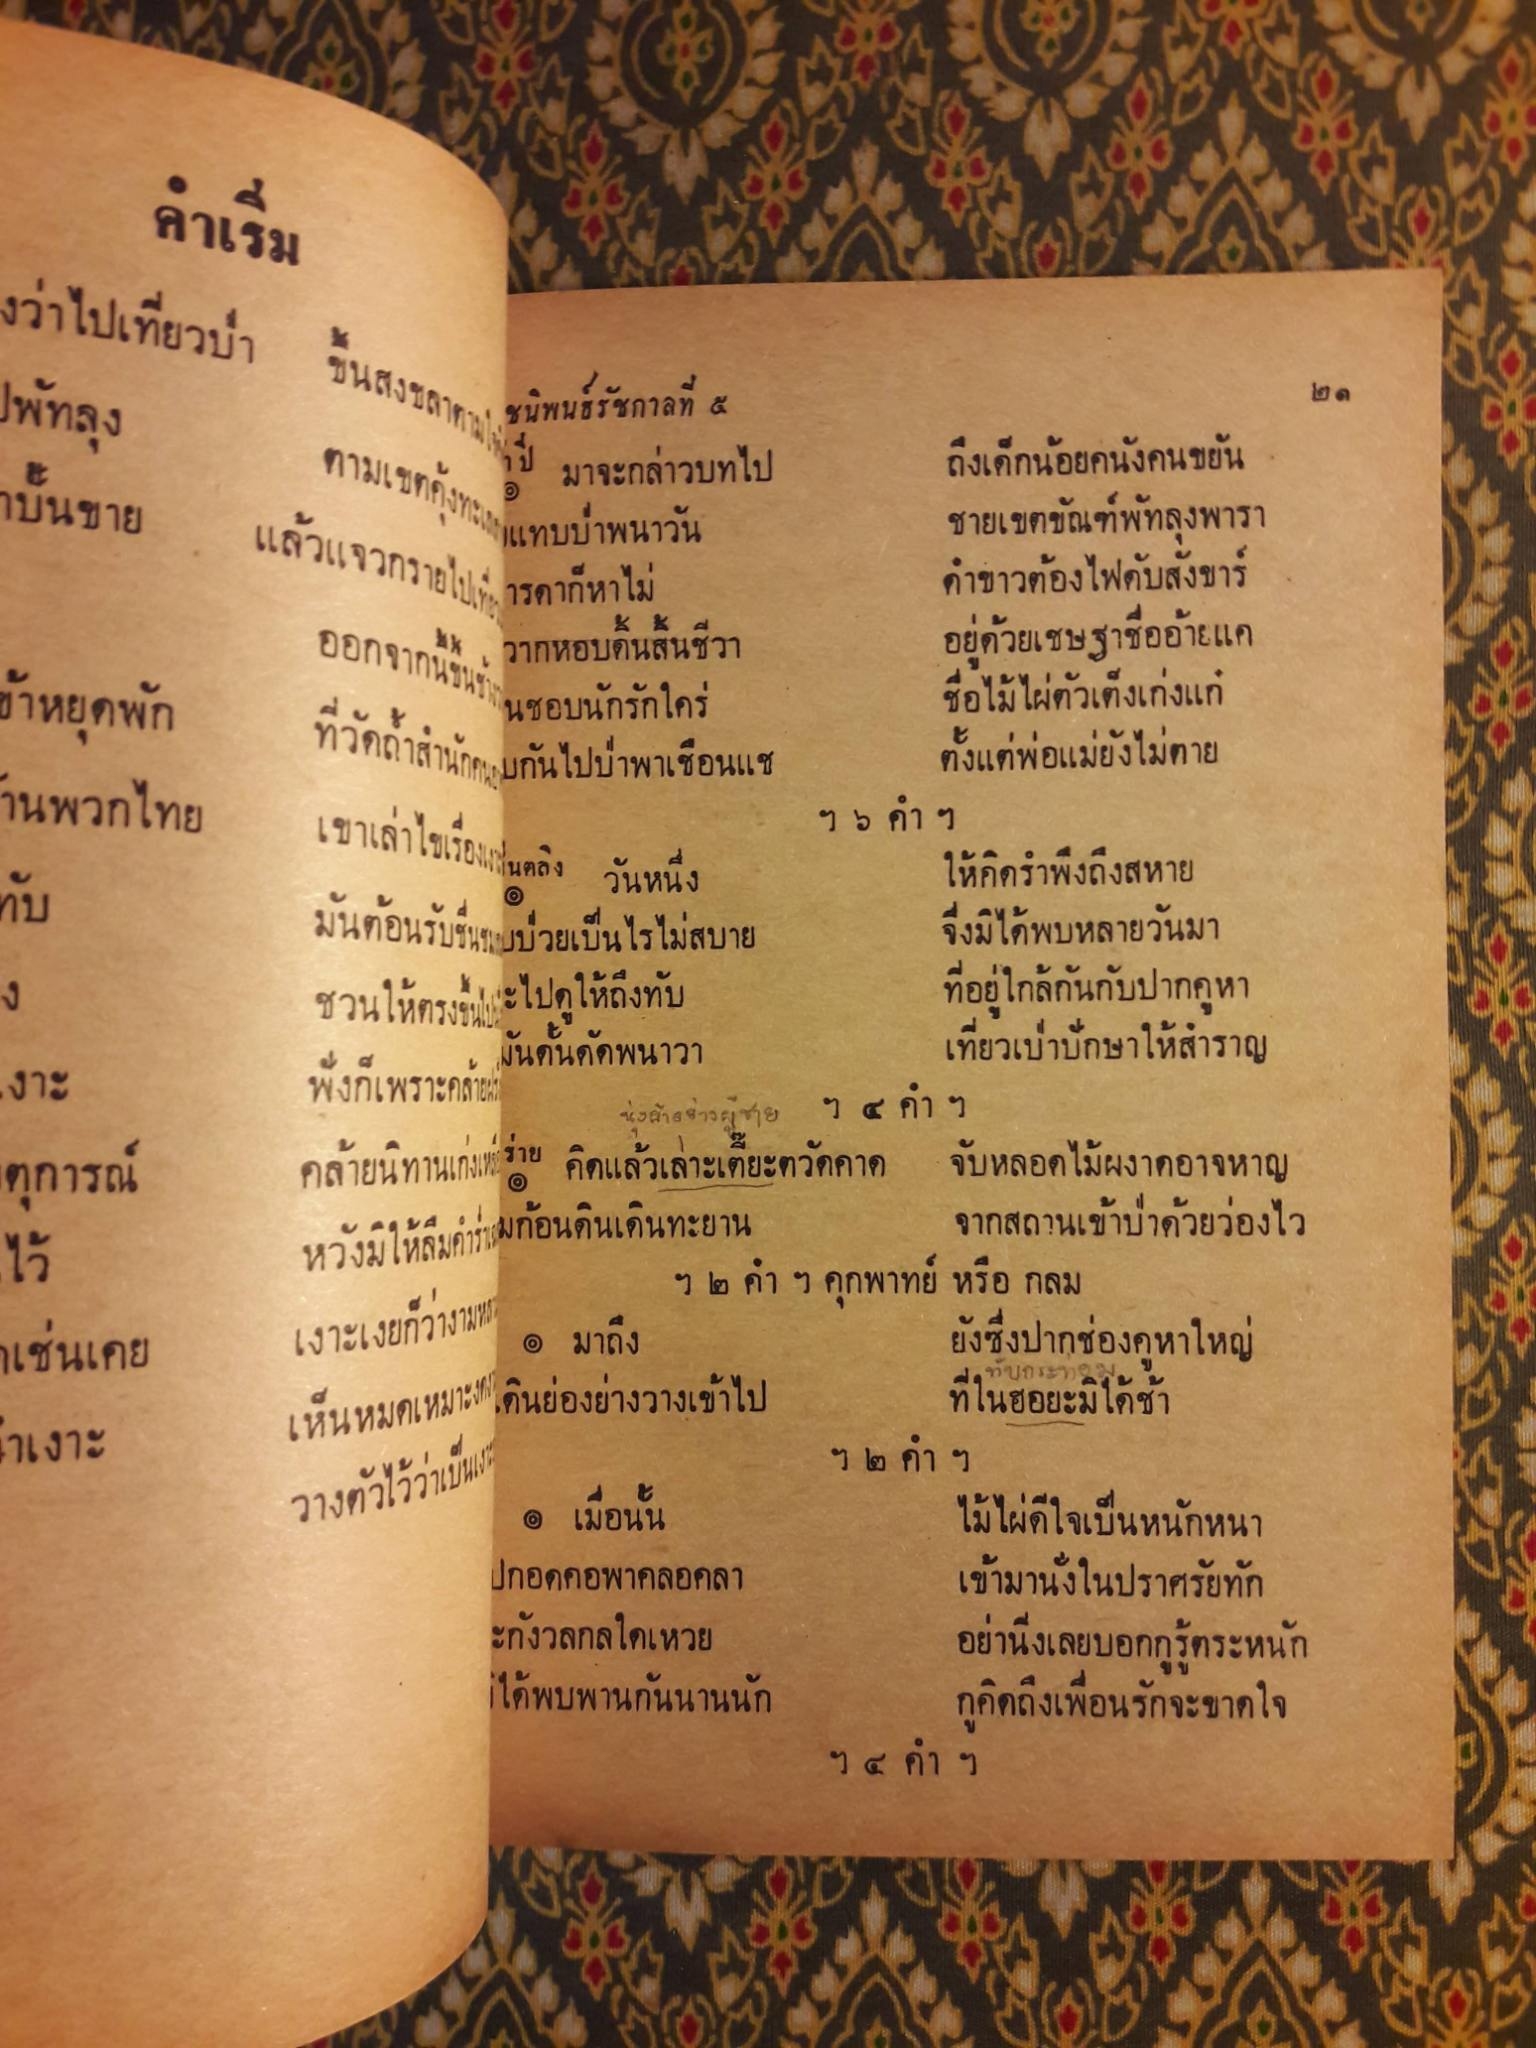 คำเริ่ม
งว่าไปเที่ยวป่า ขึ้นสงขลาตาม
ปพัทลุง ตามเขตคุ้ง
บั้นขาย แล้วแจวกรายไปเที่ยว
ออกจากนี้ขึ้นช้าง
เข้าหยุดพัก ที่วัดถ้ำสำนัก
้านพวกไทย เขาเล่าไขเรื่อง
ทับ มันต้อนรับชื่น
ง ชวนให้ตรงขึ้นไป
เงาะ พึ่งก็เพราะคล้าย
ตุการณ์ คล้ายนิทานเก่ง
ไว้ หวังมิให้ลืมคำร่ำ
เช่นเคย เงาะเงยก็ว่างาม
เงาะ เห็นหมดเหมาะ
วางตัวไว้ว่าเป็นเงาะ
ชนิพนธ์รัชกาลที่ ๕ ๒๑
ปี่
๏ มาจะกล่าวบทไป ถึงเด็กน้อยคนังคนขยัน
แทบป่าพนาวัน ชายเขตขัณฑ์พัทลุงพารา
ารดาก็หาไม่ ดำขาวต้องไฟดับสังขาร์
วากหอบดิ้นสิ้นชีวา อยู่ด้วยเชษฐาชื่ออ้ายแค
นชอบนักรักใคร่ ชื่อไม้ไผ่ตัวเต็งเก่งแก๋
บกันไปป่าพาเชือนแช ตั้งแต่พ่อแม่ยังไม่ตาย
ฯ ๖ คำ ฯ
นตลิง
๏ วันหนึ่ง ให้คิดรำพึงถึงสหาย
บป่วยเป็นไรไม่สบาย จึ่งมิได้พบหลายวันมา
ะไปดูให้ถึงทับ ที่อยู่ใกล้กันกับปากคูหา
มันดั้นดัดพนาวา เที่ยวเป่าปักษาให้สำราญ
ฯ ๔ คำ ฯ
นุ่งผ้าอย่างผู้ชาย
ร่าย
๏ คิดแล้วเล่าะเตี๊ยะตวัดคาด จับหลอดไม้ผงาดอาจหาญ
มก้อนดินเดินทะยาน จากสถานเข้าป่าด้วยว่องไว
ฯ ๒ คำ ฯ คุกพาทย์ หรือ กลม
๏ มาถึง ยังซึ่งปากช่องคูหาใหญ่
ทับกระท่อม
เดินย่องย่างวางเข้าไป ที่ในฮอยะมิได้ช้า
ฯ ๒ คำ ฯ
๏ เมื่อนั้น ไม้ไผ่ดีใจเป็นหนักหนา
ปกอดคอพาคลอคลา เข้ามานั่งในปราศรัยทัก
ะกังวลกลใดเหวย อย่านึ่งเลยบอกกูรู้ตระหนัก
มิได้พบพานกันนานนัก กูคิดถึงเพื่อนรักจะขาดใจ
ฯ ๔ คำ ฯ